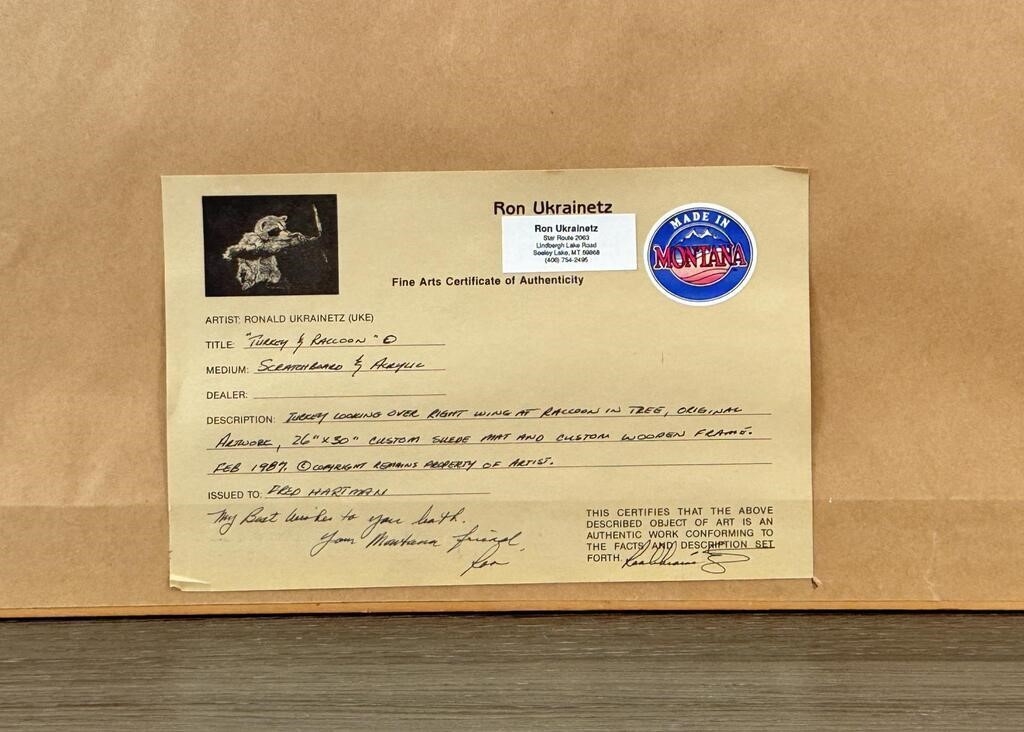 Ron Ukrainetz
Ron Ukrainetz
Star Route 2063
Lindbergh Lake Road
Seeley Lake, MT 59868
(406) 754-2495
MADE IN
MONTANA
Fine Arts Certificate of Authenticity
ARTIST: RONALD UKRAINETZ (UKE)
TITLE: "TURKEY & RACCOON" ©
MEDIUM: SCRATCHBOARD & ACRYLIC
DEALER:
DESCRIPTION: TURKEY LOOKING OVER RIGHT WING AT RACCOON IN TREE, ORIGINAL
ARTWORK, 26" X 30" CUSTOM SUEDE MAT AND CUSTOM WOODEN FRAME.
FEB 1987. © COPYRIGHT REMAINS PROPERTY OF ARTIST.
ISSUED TO: FRED HARTMAN
My Best Wishes to you both.
Your Montana friend,
Ron
THIS CERTIFIES THAT THE ABOVE
DESCRIBED OBJECT OF ART IS AN
AUTHENTIC WORK CONFORMING TO
THE FACTS AND DESCRIPTION SET
FORTH.